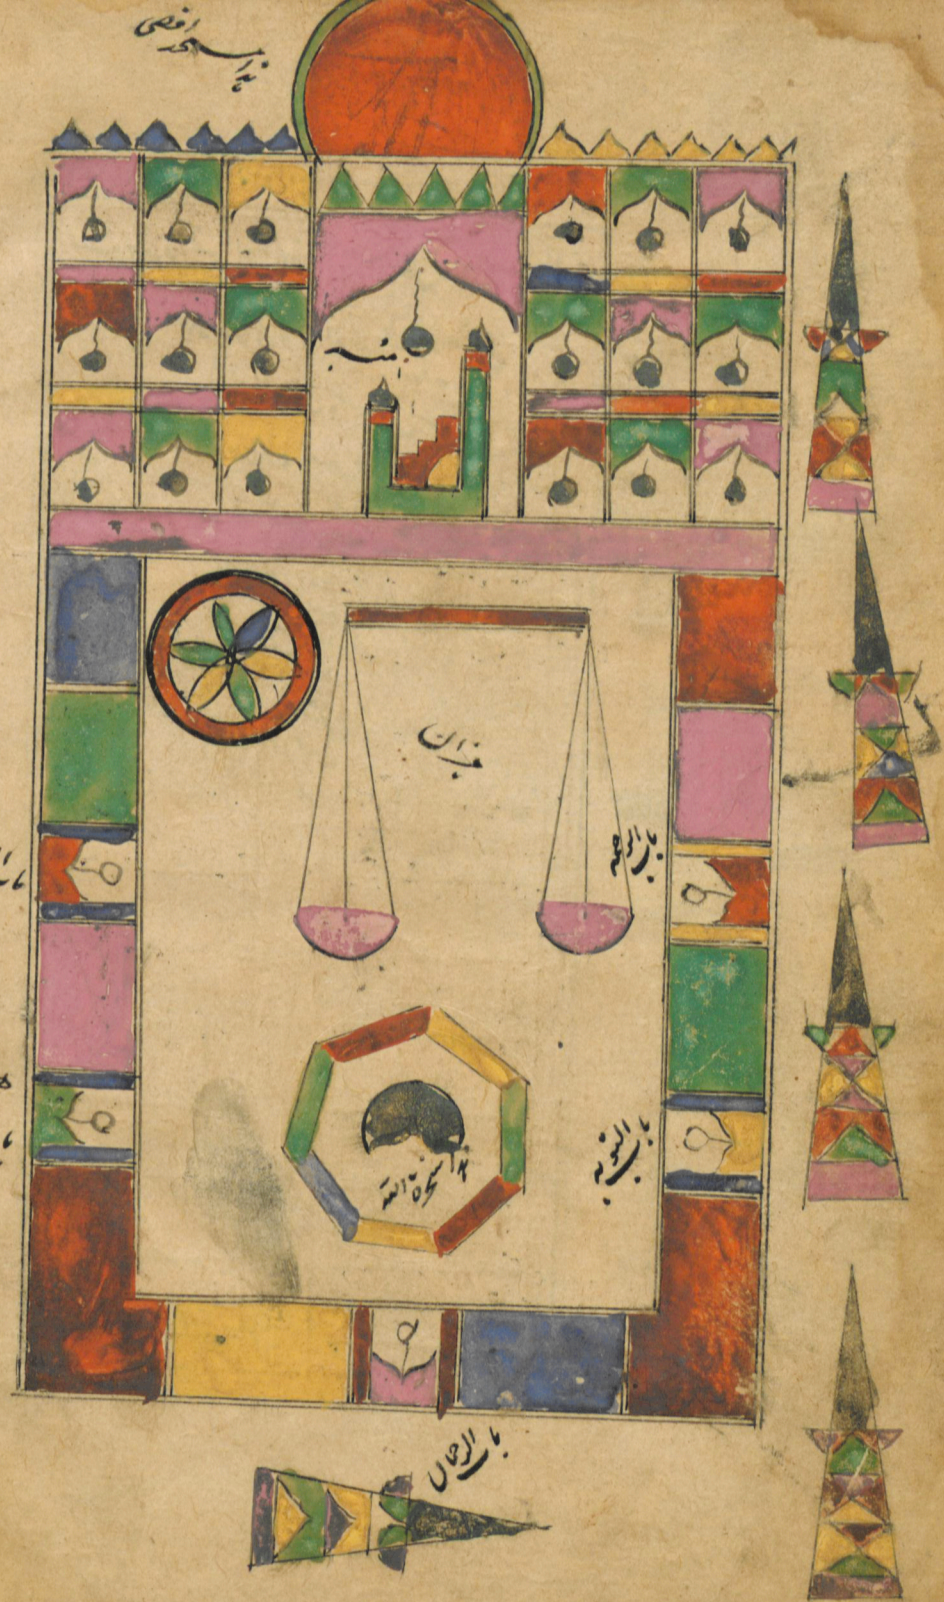 هذا مسجد اقصى
منبر
میزان
باب الرحمه
باب التوبه
هذا سخرة الله
باب الرحمان